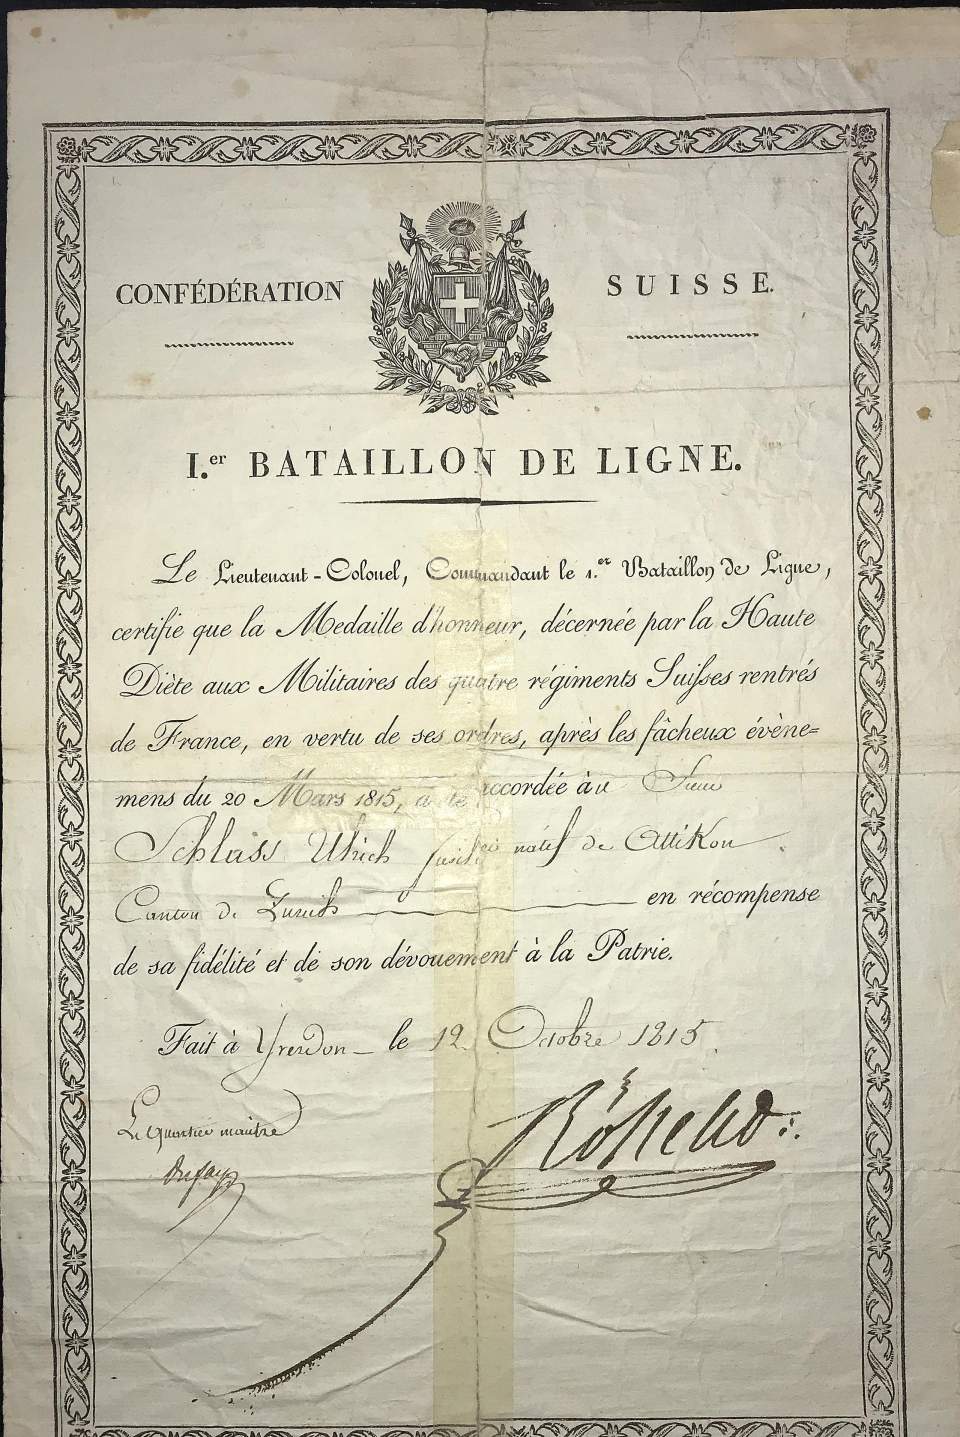 CONFÉDÉRATION SUISSE.
I.er BATAILLON DE LIGNE.
Le Lieutenant-Colonel, Commandant le 1.er Bataillon de Ligne,
certifie que la Medaille d'honneur, décernée par la Haute
Diète aux Militaires des quatre régiments Suisses rentrés
de France, en vertu de ses ordres, après les fâcheux évène=
mens du 20 Mars 1815, a été accordée àu Sieur
Schlass Ulrich fusilier natif de Attikon
Canton de Zurich en récompense
de sa fidélité et de son dévouement à la Patrie.
Fait à Yverdon le 12 Octobre 1815.
Le Quartier maitre